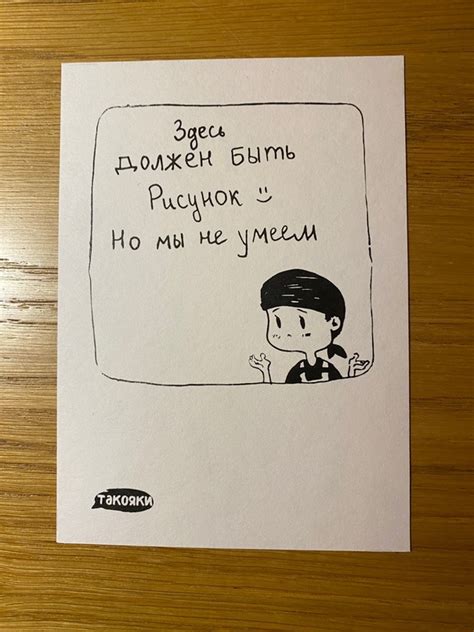 Здесь
должен быть
Рисунок :)
Но мы не умеем
такояки